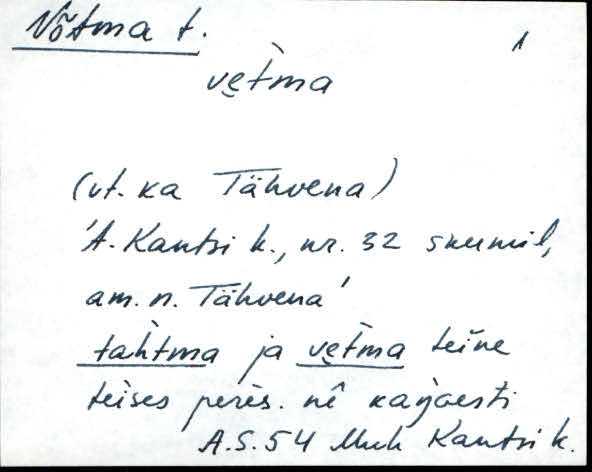 Võtma t.
1
vę̀tma
(vt. ka Tähvena)
'A. Kantsi k., nr. 32 suumil,
am. n. Tähvena'
tàhtma ja vę̀tma teine
teises perès. nê
A.S. 54 Muh Kantsi k.